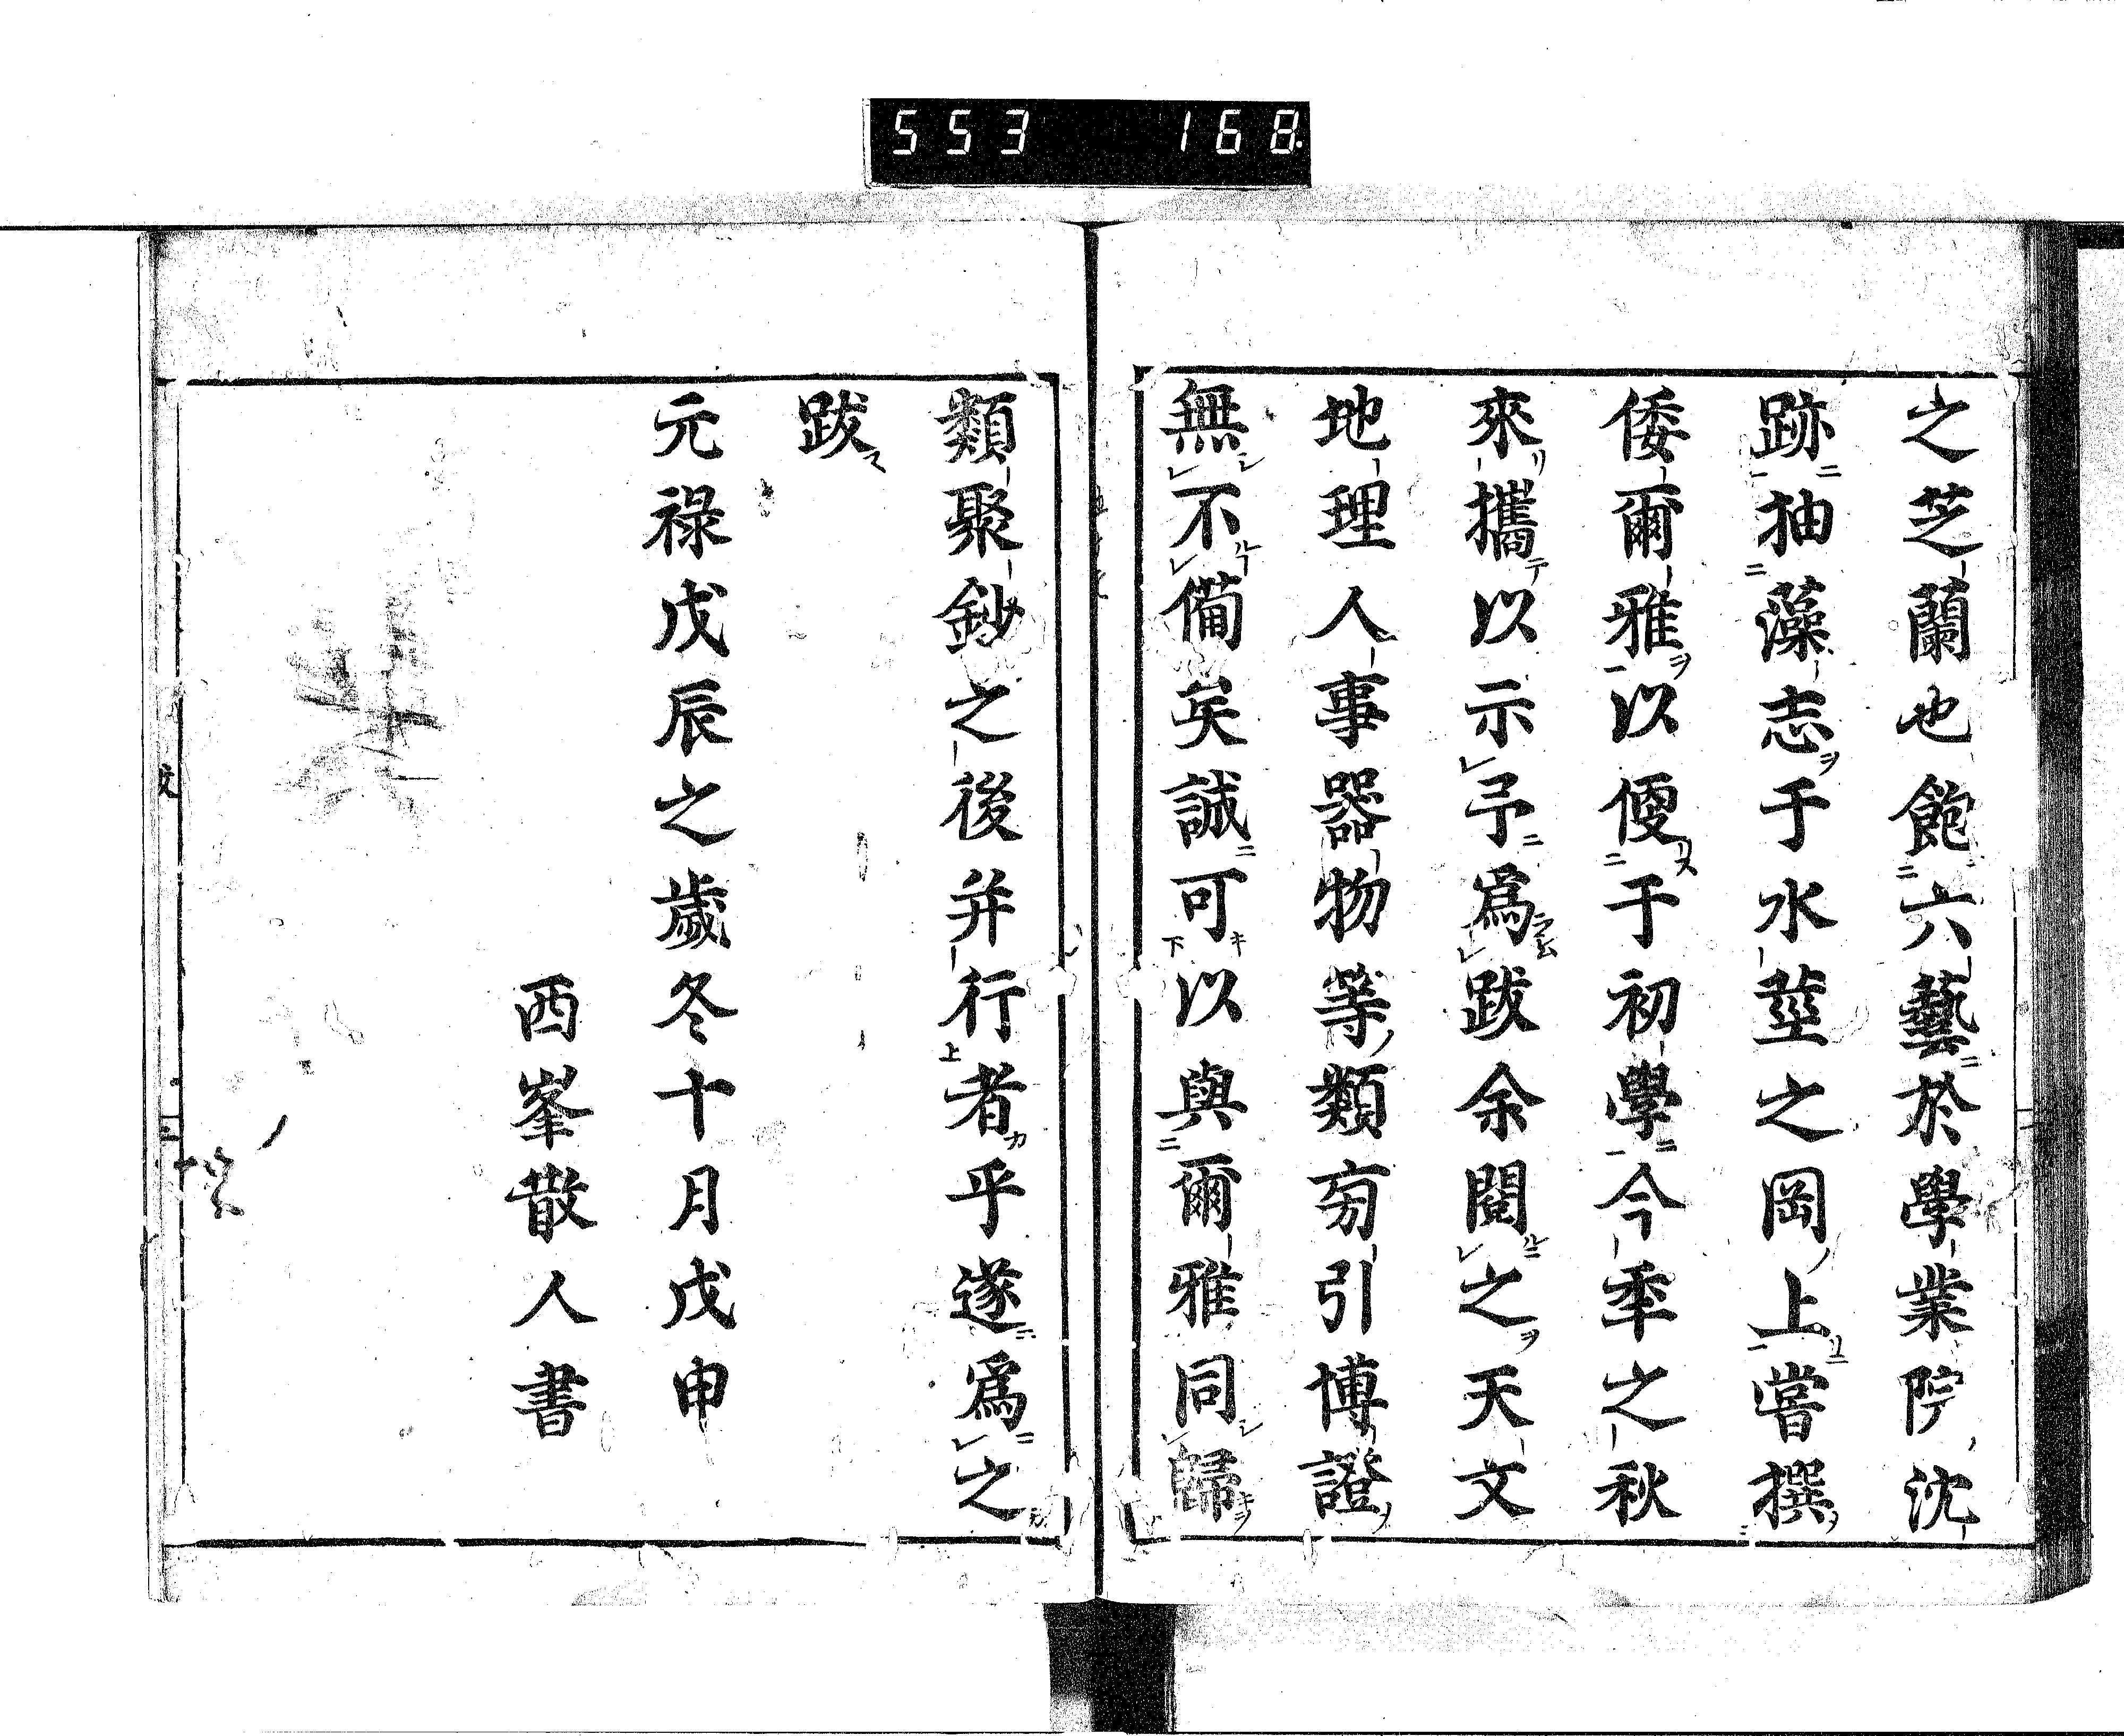 553 168
之芝蘭也飽六藝於學業院沈
跡抽藻志于水莖之岡上嘗撰
倭爾雅以便于初學今年之秋
來攜以示予爲跋余閱之天文
地理人事器物等類旁引博證
無不備矣誠可以與爾雅同歸
類聚鈔之後并行者乎遂爲之
跋
元祿戊辰之歲冬十月戊申
西峯散人書